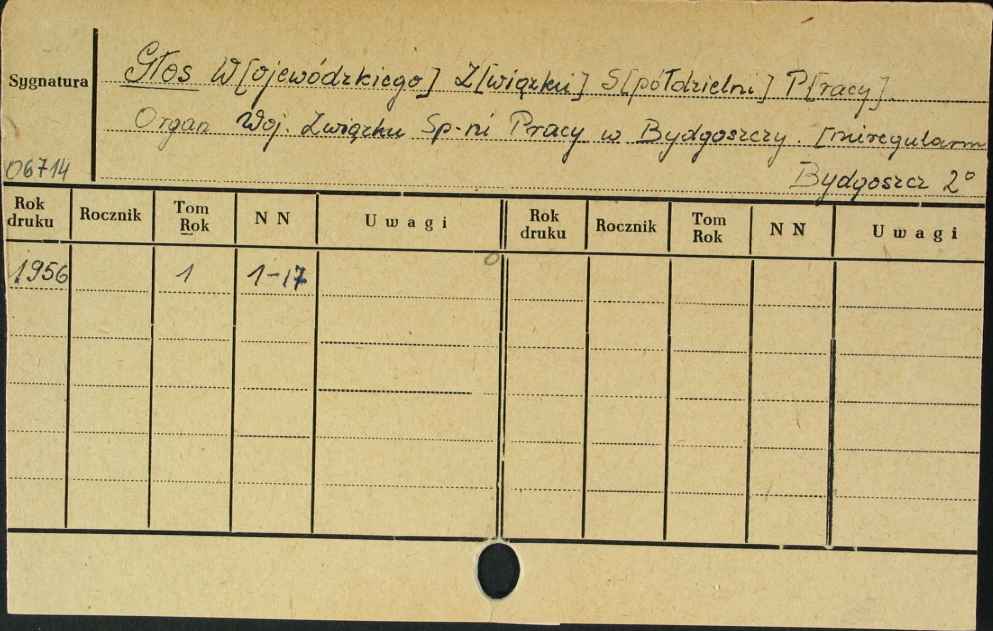 Sygnatura
Głos W[ojewódzkiego] Z[wiązku] S[półdzielni] P[racy].
Organ Woj. Związku Sp-ni Pracy w Bydgoszczy. [nieregularn
06714
Bydgoszcz 2°
Rok druku Rocznik Tom Rok N N Uwagi Rok druku Rocznik Tom Rok N N Uwagi
1956 1 1-17